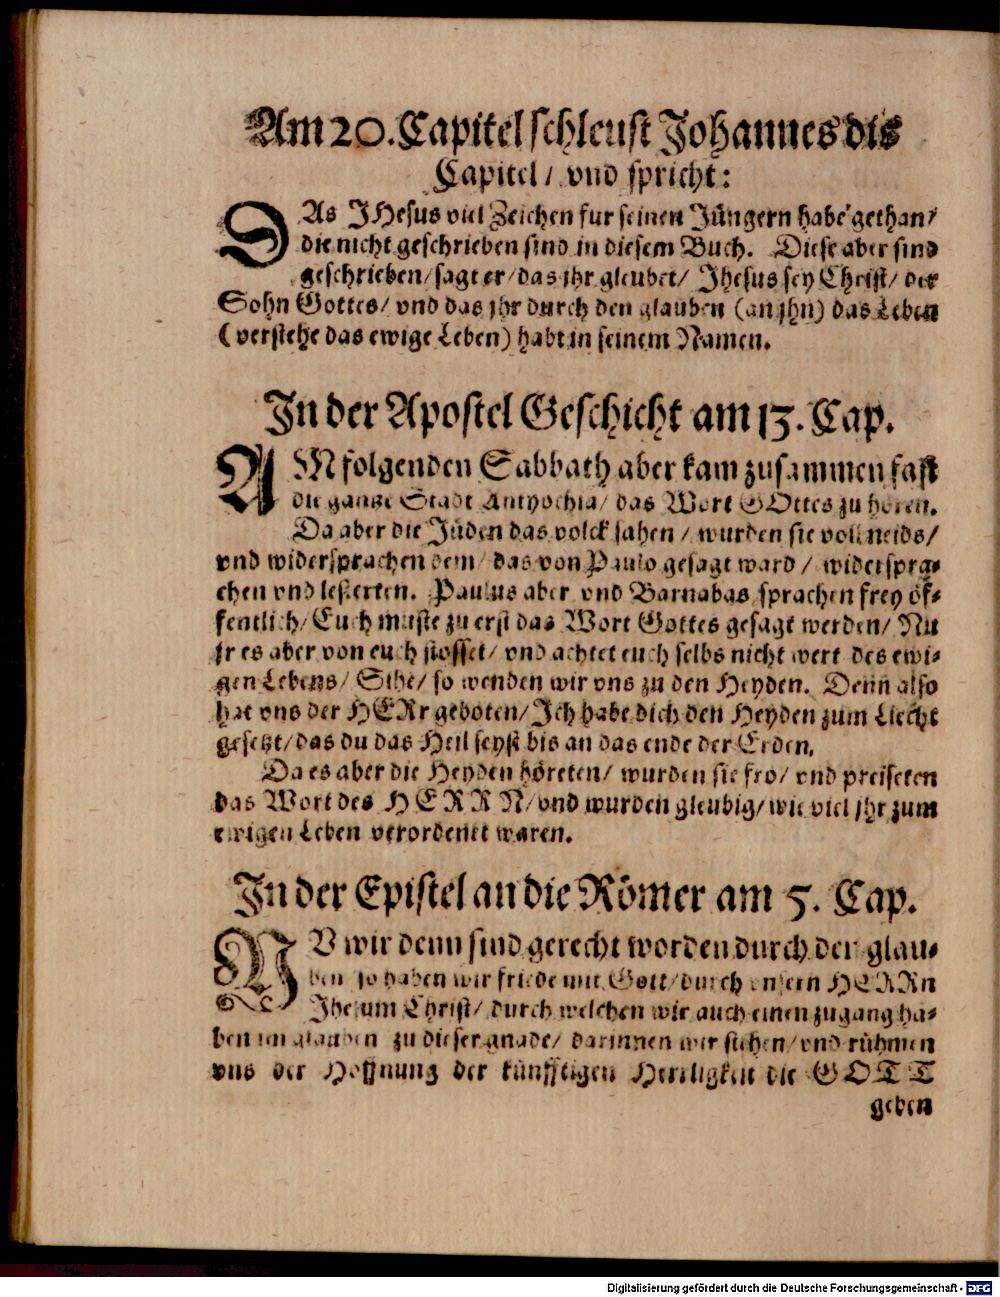 Am 20. Capitel schleust Johannes dis
Capitel / vnd spricht:
DAs JHesus viel Zeichen fur seinen Jüngern habe gethan /
die nicht geschrieben sind in diesem Buch. Diese aber sind
geschrieben / sagt er / das jhr gleubet / Jhesus sey Christ / der
Sohn Gottes / vnd das jhr durch den glauben (an jhn) das Leben
(verstehe das ewige Leben) habt in seinem Namen.
In der Apostel Geschicht am 13. Cap.
AM folgenden Sabbath aber kam zusammen fast
die gantze Stadt Antyochia / das Wort GOttes zu hören.
Da aber die Jüden das volck sahen / wurden sie voll neids /
vnd widersprachen dem / das von Paulo gesagt ward / widerspra-
chen vnd lesterten. Paulus aber vnd Barnabas sprachen frey öf-
fentlich / Euch muste zu erst das Wort Gottes gesagt werden / Nu
jr es aber von euch stosset / vnd achtet euch selbs nicht wert des ewi-
gen Lebens / Sihe / so wenden wir vns zu den Heyden. Denn also
hat vns der HERr geboten / Ich habe dich den Heyden zum Liecht
gesetzt / das du das Heil seyst bis an das ende der Erden.
Da es aber die Heyden höreten / wurden sie fro / vnd preiseten
das Wort des HERRN / vnd wurden gleubig / wie viel jhr zum
ewigen Leben verordenet waren.
In der Epistel an die Römer am 5. Cap.
NU wir denn sind gerecht worden durch den glau-
ben so haben wir friede mit Gott / durch vnsern HERRn
Jhesum Christ / durch welchen wir auch einen zugang ha-
ben im glauben zu dieser gnade / darinnen wir stehen / vnd rühmen
vns der Hoffnung der künfftigen Herrligkeit die GOTT
geben
Digitalisierung gefördert durch die Deutsche Forschungsgemeinschaft - DFG